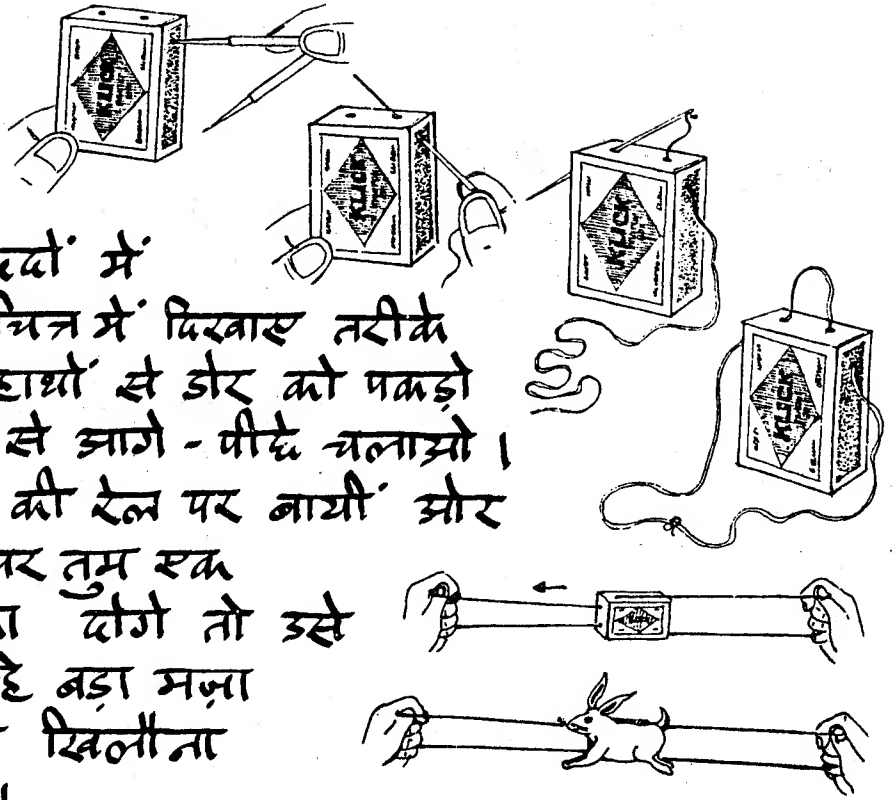 KLICK
KLICK
KLICK
KLICK
में
चित्र में दिखाए तरीके
हाथों से डोर को पकड़ो
से आगे-पीछे चलाओ।
की रेल पर बायीं ओर
पर तुम एक
दोगे तो उसे
बड़ा मज़ा
खिलौना